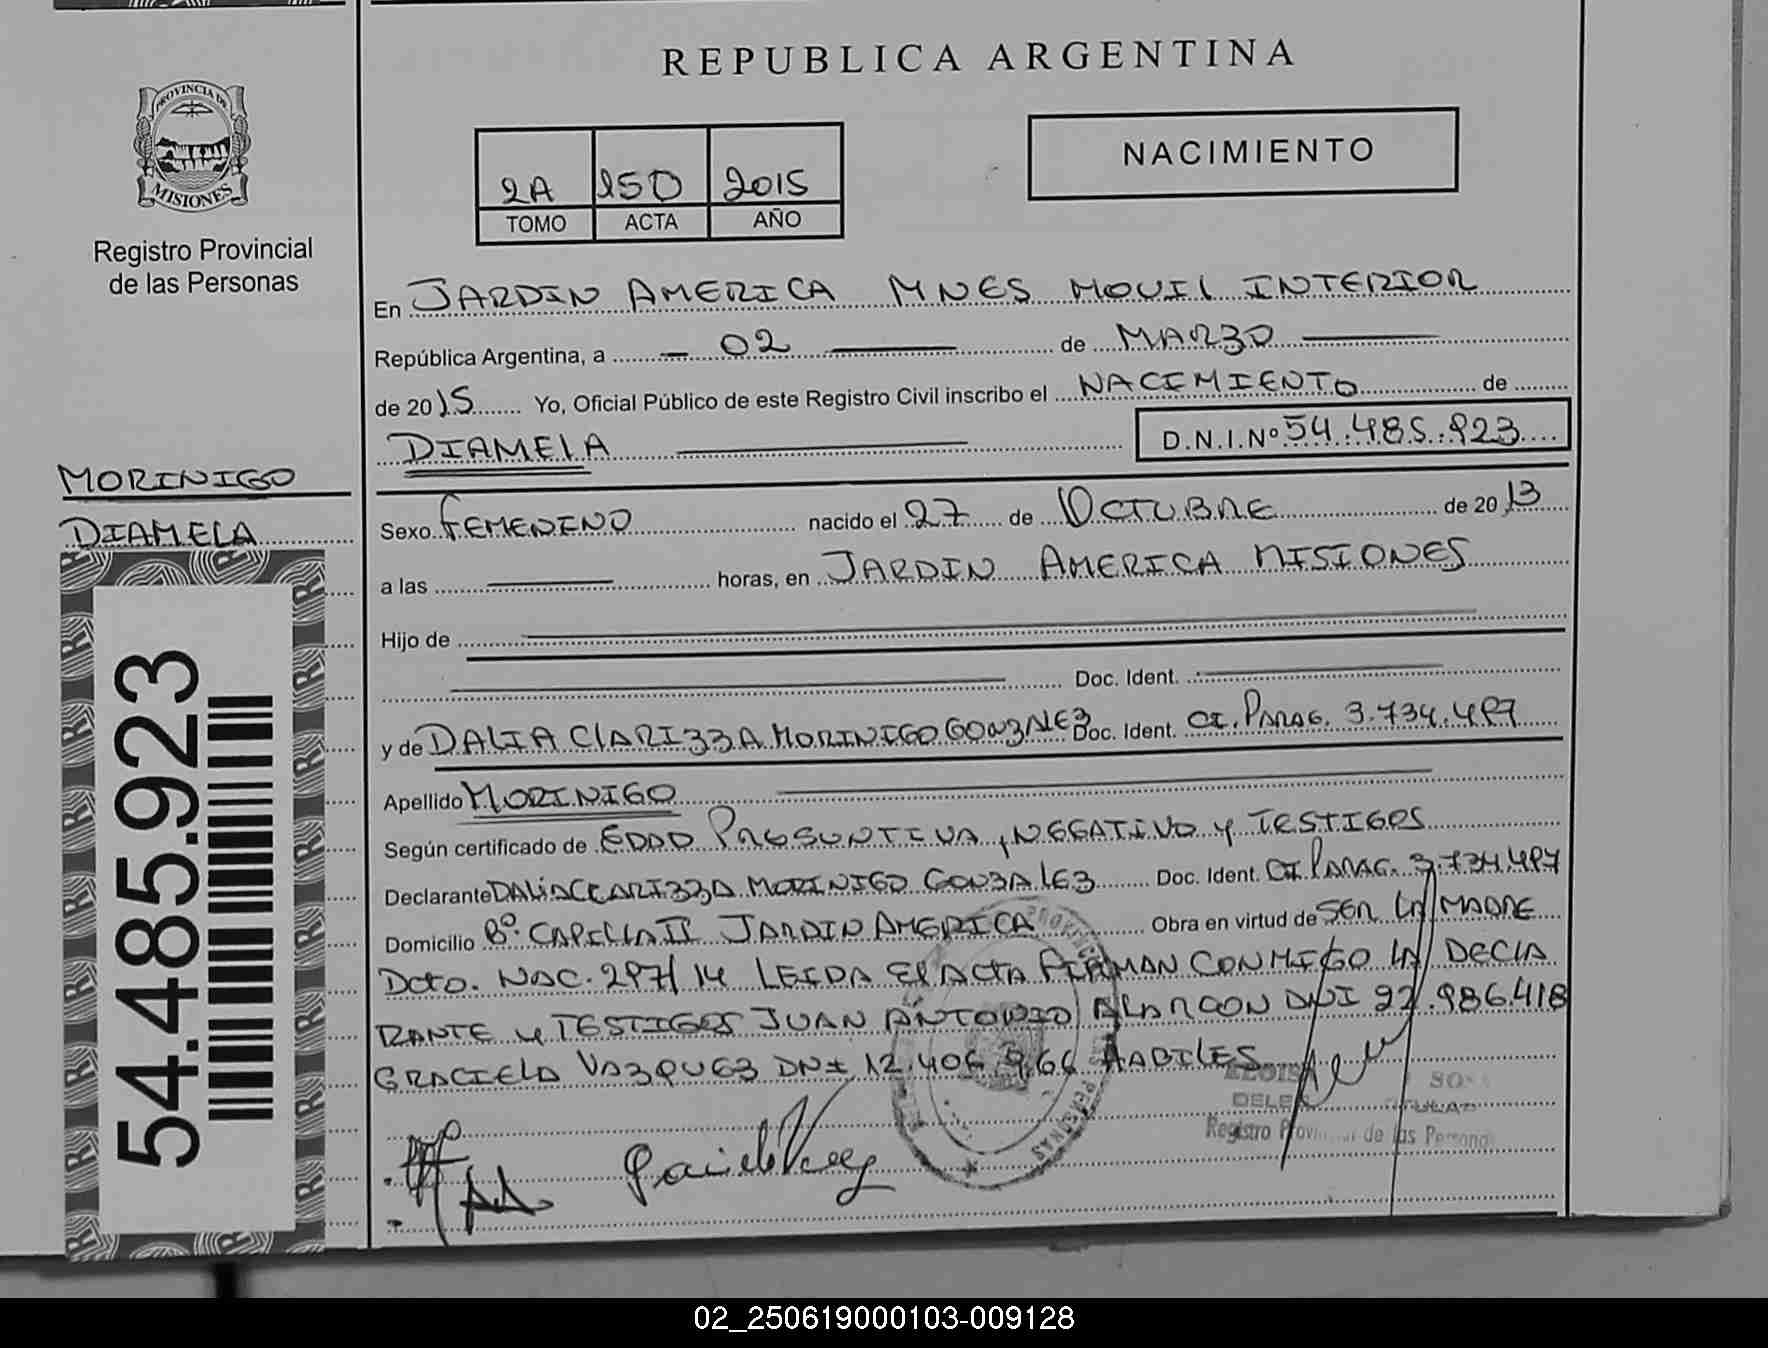 REPUBLICA ARGENTINA
NACIMIENTO
PROVINCIA DE
MISIONES
Registro Provincial
de las Personas
2A 150 2015
TOMO ACTA AÑO
En JARDIN AMERICA MNES MOVIL INTERIOR
República Argentina, a 02 de MARZO
de 2015 Yo, Oficial Público de este Registro Civil inscribo el NACIMIENTO de
DIAMELA D.N.I.Nº 54.485.923
MORINIGO
DIAMELA
Sexo FEMENINO nacido el 27 de OCTUBRE de 2013
a las horas, en JARDIN AMERICA MISIONES
Hijo de
Doc. Ident.
y de DALIA CLARIZZA MORINIGO GONZALEZ Doc. Ident. CI. PARAG. 3.734.497
Apellido MORINIGO
Según certificado de EDAD PRESUNTIVA, NEGATIVO Y TESTIGOS
Declarante DALIA CLARIZZA MORINIGO GONZALEZ Doc. Ident. CI PARAG. 3.734.497
Domicilio Bº CAPILLA II JARDIN AMERICA Obra en virtud de SER LA MADRE
Dcto. NAC. 297/14 LEIDA EL ACTA FIRMAN CONMIGO LA DECLA
RANTE Y TESTIGOS JUAN ANTONIO ALARCON DNI 92.986.418
GRACIELA VAZQUEZ DNI 12.406.966 HABILES
DELE TITULAR
Registro Provincial de las Personas
PERSONAS
54.485.923
02_250619000103-009128